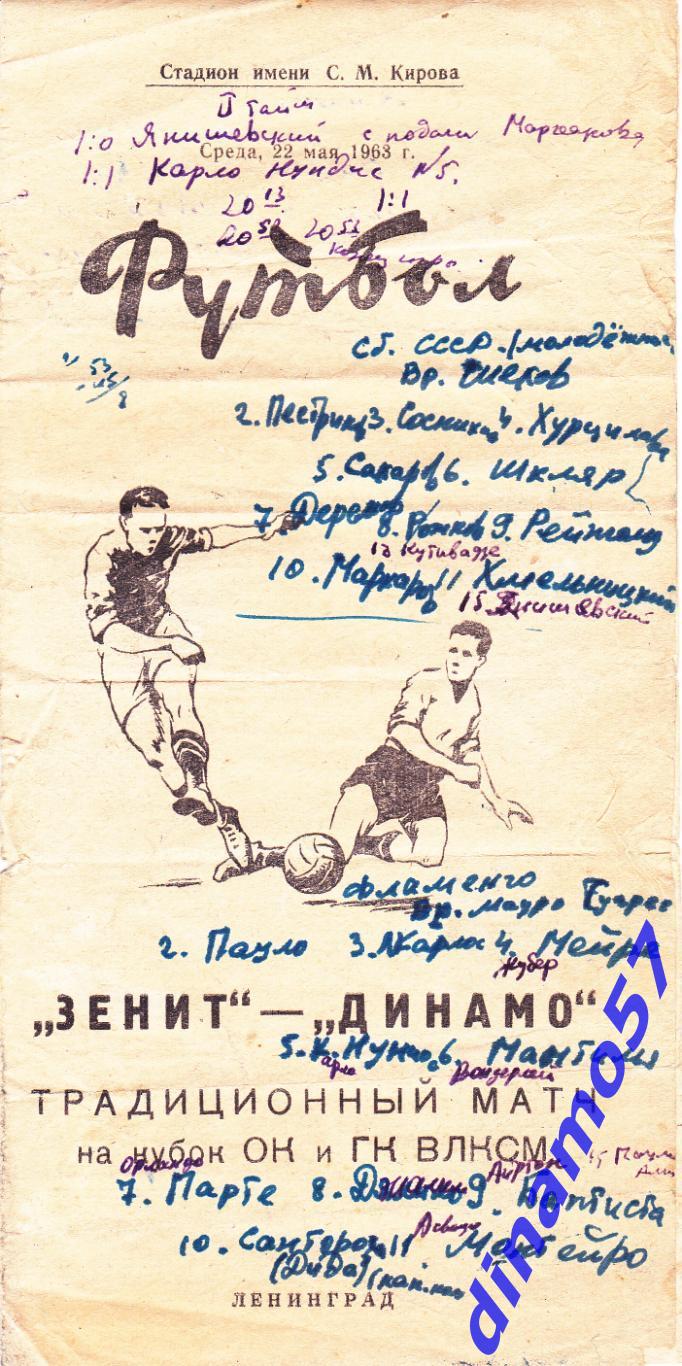 Стадион имени С. М. Кирова
II тайм
1:0 Янишевский с подачи Маркарова
Среда, 22 мая 1963 г.
1:1 Карло Нуньес №5.
20 13 1:1
20 58 20 58
Футбол
сб. СССР (молодёжная
Вр. Шехов
2. Пестриков 3. Сосников 4. Хурцилава
5. Сахаров 6. Шкляр
7. Деремов 8. Рожков 9. Рейнгольд
13 Кутивадзе
10. Маркаров 11 Хмельницкий
15. Янишевский
Фламенго
Вр. Мауро
2. Пауло 3. Жарлос 4. Мейре
Жубер
„ЗЕНИТ“ — „ДИНАМО“
5. К. Нуньо 6.
арло Вандерлей
ТРАДИЦИОННЫЙ МАТЧ
на кубок ОК и ГК ВЛКСМ
Орландо Аиртон 15 Пауло
7. Парте 8. 9. Баптиста
10. Сантероза 11 Монтейро
(Дида)
ЛЕНИНГРАД
dinamo57